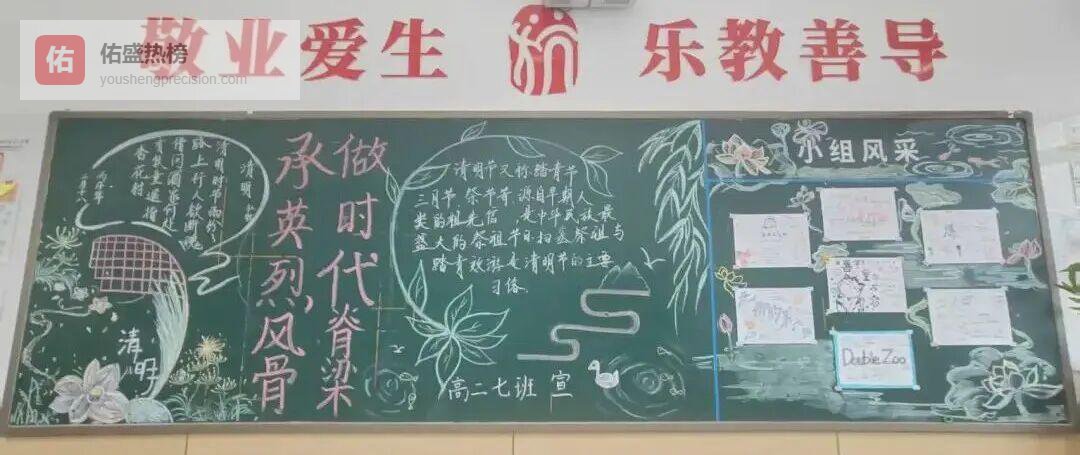 敬业爱生 乐教善导
佑
佑盛热榜
youshengprecision.com
清明
清明时节雨纷纷
路上行人欲断魂
借问酒家何处
清明
承英烈风骨，
做时代脊梁
清明节又称踏青节
三月节、祭节等 源自早期人
类的祖先信 是中华民族最
盛大的祭祖节日扫墓祭祖与
踏青 游是清明节的主要
习俗.
高二七班 宣
小组风采
Double Zoo